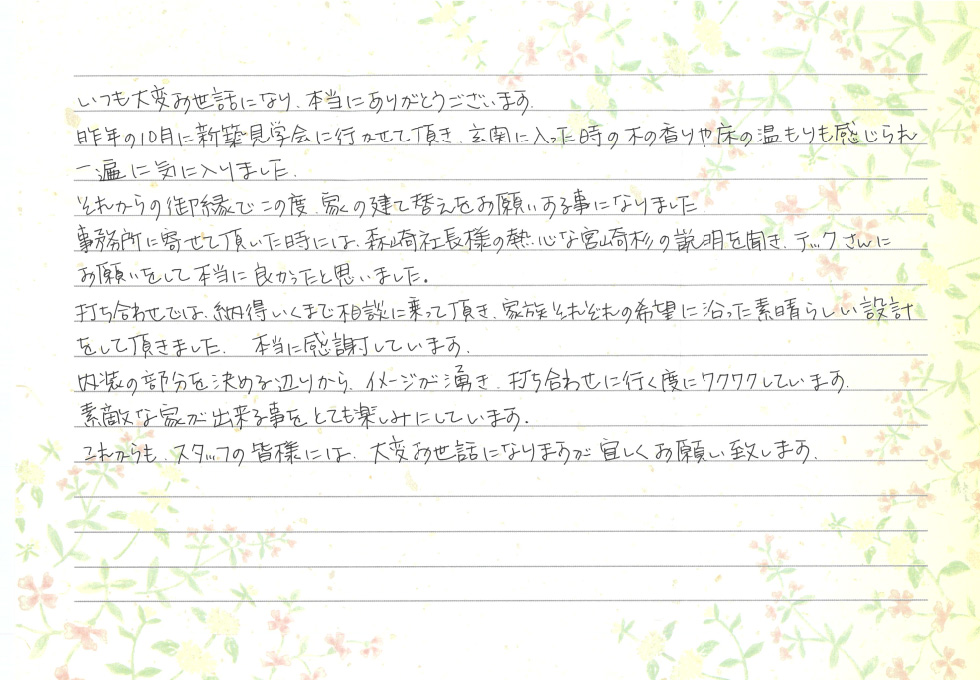 いつも大変お世話になり、本当にありがとうございます。
昨年の10月に新築見学会に行かせて頂き、玄関に入った時の木の香りや床の温もりも感じられ
一遍に気に入りました。
それからの御縁でこの度、家の建て替えをお願いする事になりました
事務所に寄せて頂いた時には、森崎社長様の熱心な宮崎杉の説明を聞き、デックさんに
お願いをして本当に良かったと思いました。
打ち合わせでは、納得いくまで相談に乗って頂き、家族それぞれの希望に沿った素晴らしい設計
をして頂きました。 本当に感謝しています。
内装の部分を決める辺りから、イメージが湧き、打ち合わせに行く度にワクワクしています。
素敵な家が出来る事をとても楽しみにしています。
これからも、スタッフの皆様には、大変お世話になりますが宜しくお願い致します。